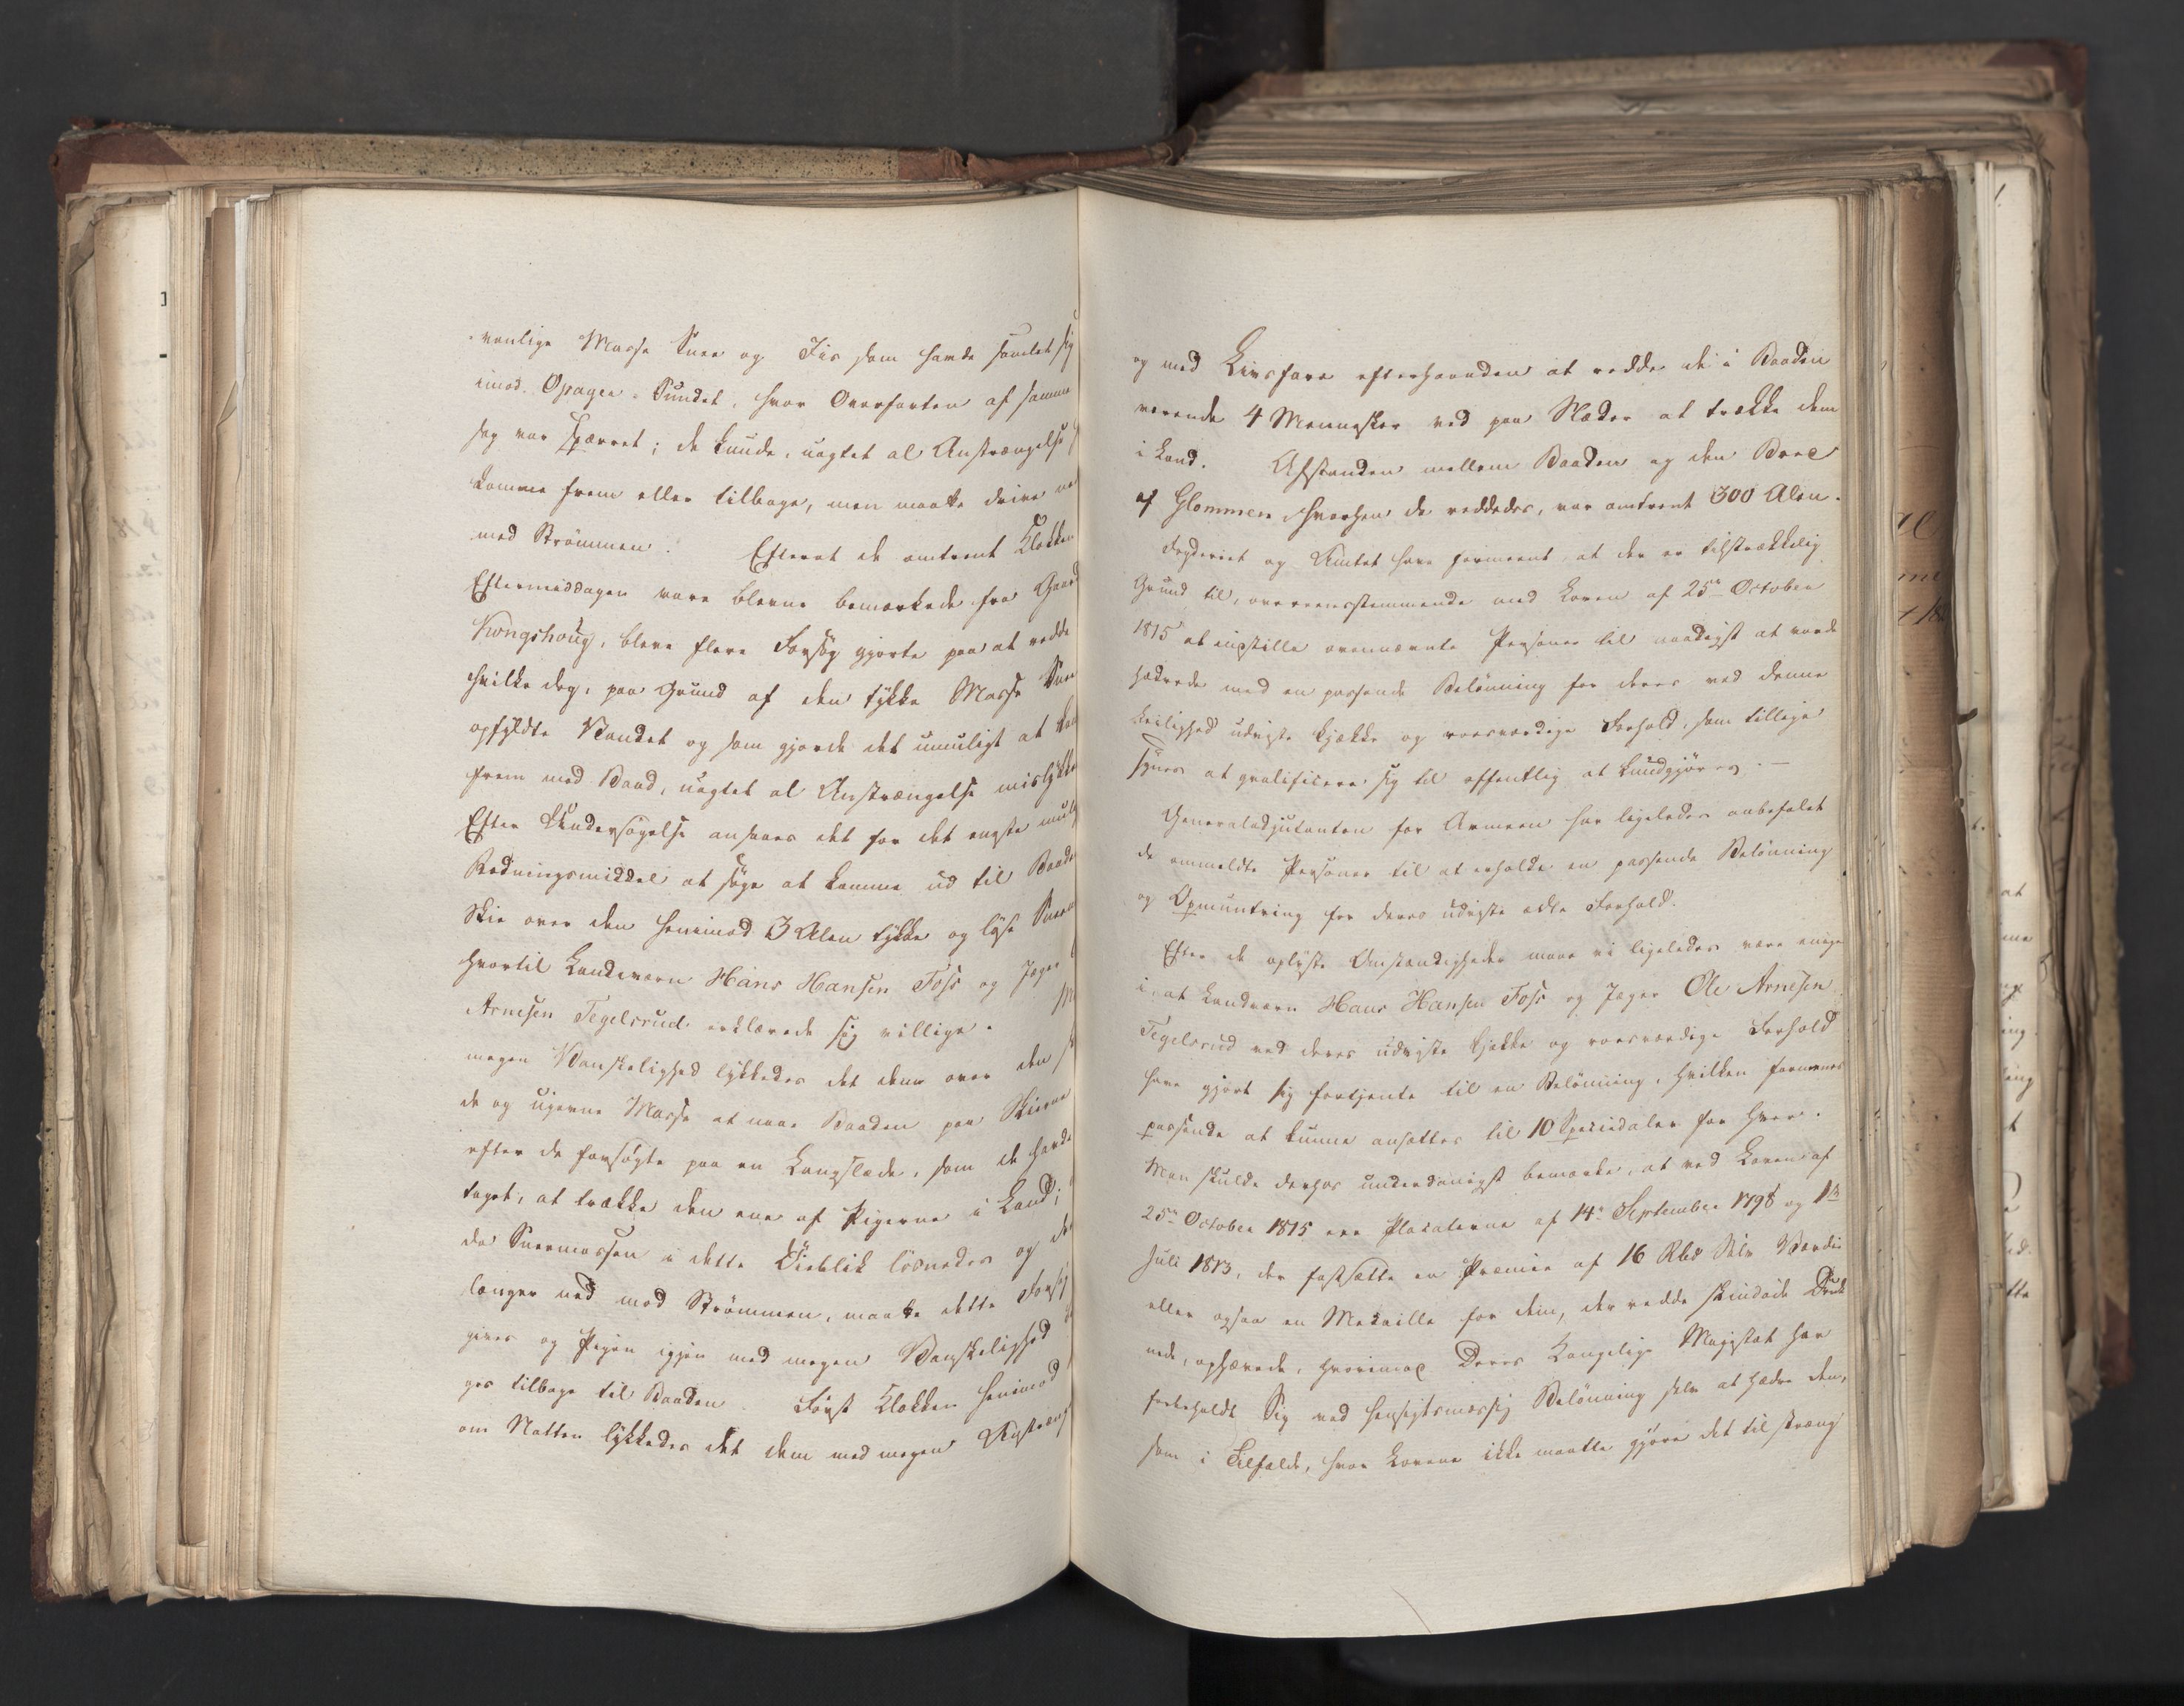 vanlige Masse Snee og Iis som havde samlet sig
imod Opager-Sundet, hvor Overfarten af samme
sag var spærret; de kunde, uagtet al Anstrængelse
komme frem eller tilbage, men maatte drive ned
med Strømmen. Efterat de omtrent Klokken
Eftermiddagen vare blevne bemærkede fra Gaard
Kongshoug, bleve flere Forsøg gjorte paa at redde
hvilke dog, paa Grund af den tykke Masse Snee
opfyldte Vandet og som gjorde det umuligt at kom
frem med Baad, uagtet al Anstrængelse mislykke
Efter Undersøgelse ansaaes det for det eneste muli
Redningsmiddel at søge at komme ud til Baade
Skie over den henimod 3 Alen tykke og løse Snee
hvortil Landeværn Hans Hansen Foss og Jæger
Arnesen Tegelsrud erklærede sig villige. M
megen Vanskelighed lykkedes det dem over den
de og ujevne Masse at naae Baaden paa Skierne
efter de forsøgte paa en Langslæde, som de havde
taget, at trække den ene af Pigerne i Land;
da Sneemassen i dette Øieblik løsnedes og
længer ned mod Strømmen, maatte dette Forsøg
gives og Pigen igjen med megen Vanskelighed
ges tilbage til Baaden. Først Klokken henimod
om Natten lykkedes det dem med megen Anstræng
og med Livsfare efterhaanden at redde de i Baaden
værende 4 Mennesker ved paa Slæder at trække dem
i Land. Afstanden mellem Baaden og den Bred
af Glommen, hvorhen de reddedes, var omtrent 300 Alen.
Fogderiet og Amtet have formeent, at der er tilstrækkelig
Grund til, overeensstemmende med Loven af 25de October
1815 at indstille ovennævnte Personer til naadigst at vorde
hædrede med en passende Belønning for deres ved denne
Leilighed udviste kjække og roesværdige Forhold, som tillige
synes at qvalificere sig til offentlig at kundgjøres. —
Generaladjutanten for Armeen har ligeledes anbefalet
de ommeldte Personer til at erholde en passende Belønning
og Opmuntring for deres udviste ædle Forhold.
Efter de oplyste Omstændigheder maae vi ligeledes være enige
i, at Landværn Hans Hansen Foss og Jæger Ole Arnesen
Tegelsrud ved deres udviste kjække og roesværdige Forhold
have gjort sig fortjente til en Belønning, hvilken formenes
passende at kunne ansættes til 10 Speciedaler for hver.
Man skulde derhos underdanigst bemærke, at ved Loven af
25de October 1815 ere Placaterne af 14de September 1798 og 1ste
Juli 1813, der fastsætte en Præmie af 16 Rbd Sølv Værdie
eller ogsaa en Medaille for dem, der redde skindøde Druk
nede, ophævede, hvorimod Deres Kongelige Majestæt har
forbeholdt Sig ved hensigtsmæssig Belønning selv at hædre den,
som i Tilfælde, hvor Lovene ikke maatte gjøre det til streng